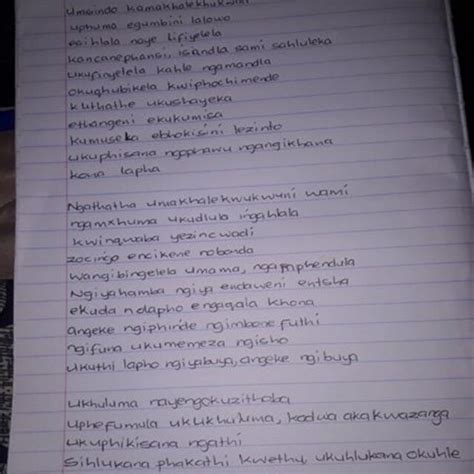 Umsindo kamakhalekhukhwini
uphuma egumbini lalowo
esihlala naye lifiyelela
kancanephansi, isandla sami sahluleka
ukufinyelela kahle ngamandla
okughubikela kwiphochimende
kuthathe ukushayeka
ethangeni ekukumisa
kumuseka ebhokisini lezinto
ukuphisana ngophawu ngangikhana
kona lapha
Ngathatha umakhalekwukwuni wami
ngamxhuma ukudlula ingahlala
kwinqwaba yezincwadi
zocingo encikene nobonda
wangibingelela umama, ngaphendula
Ngiyahamba ngiya endaweni entsha
ekuda ndapho engaqala khona
angeke ngiphinde ngimbone futhi
ngifuna ukumemeza ngisho
ukuthi lapho ngiyabuya, angeke ngibuya
ukhuluma nayengokuzithoba
uphefumula ukukhuluma, kodwa akakwazanga
ukuphikisana ngathi
Sihlukana phakathi kwethu, ukuhlukana okuhle